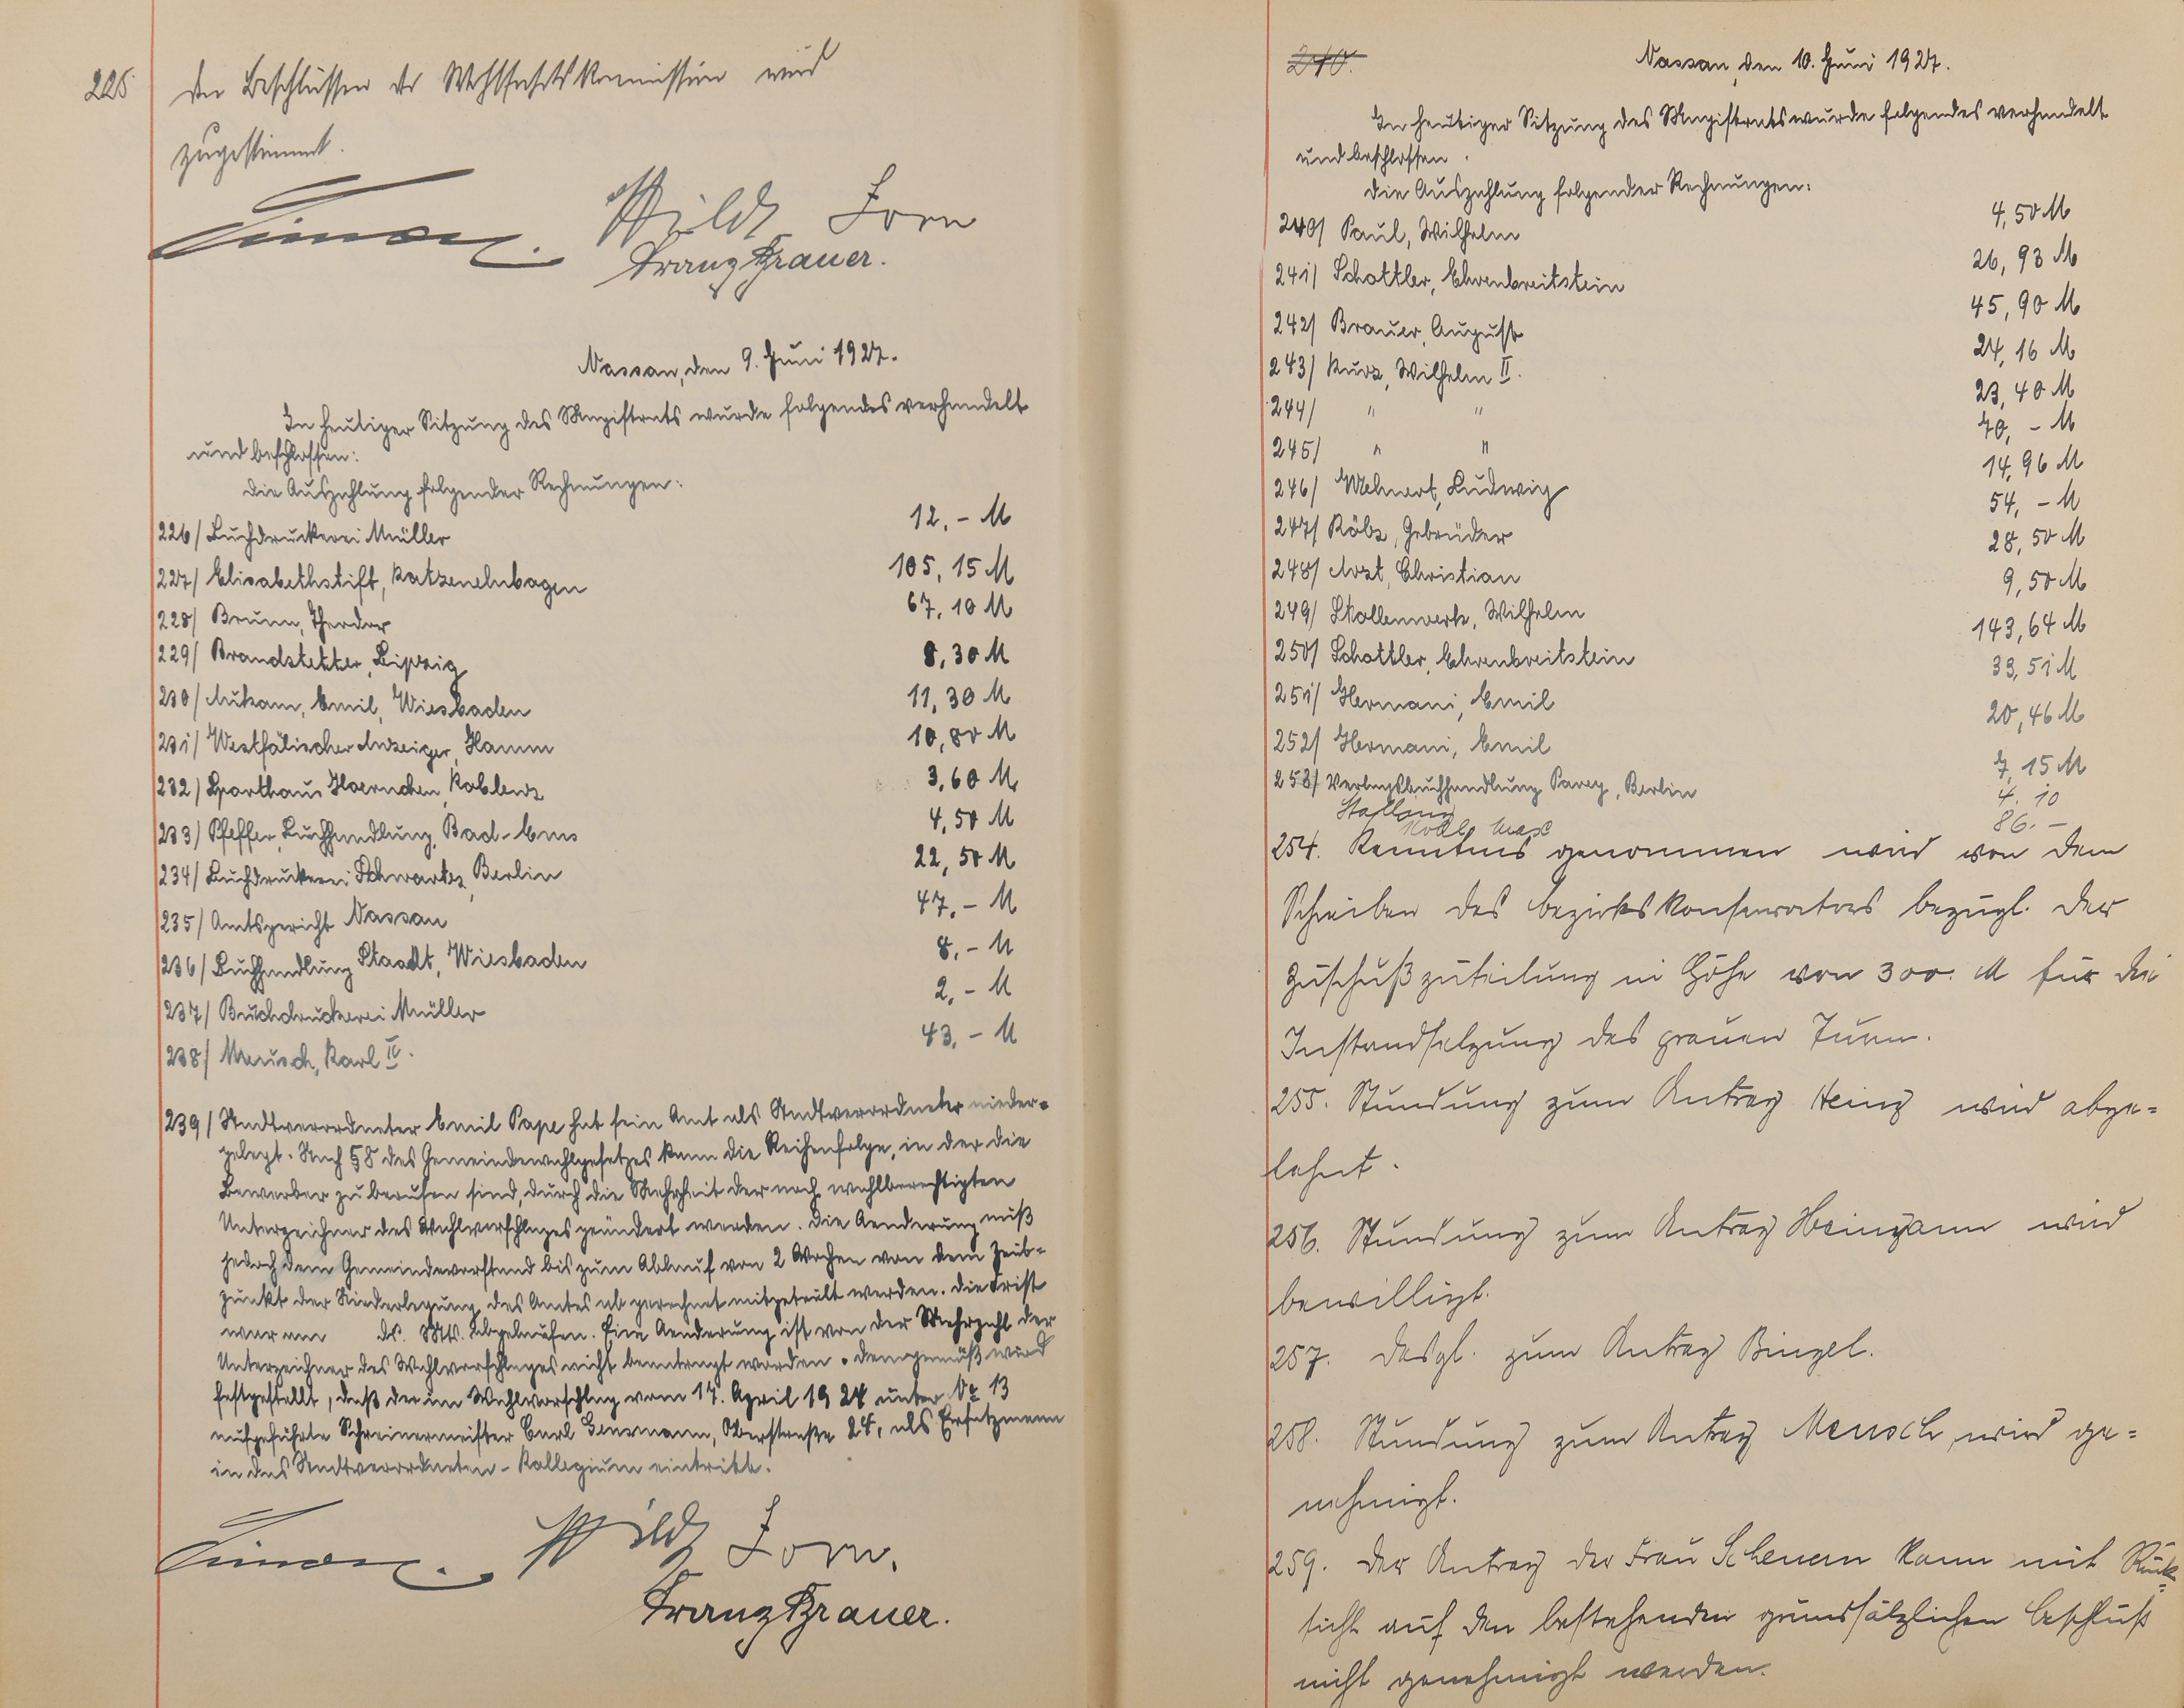 225 Den Beschlüssen der Wohlfahrtskommission wird
zugestimmt.
Simon. Wild Zorn
Franz Grauer.
Nassau, den 9. Juni 1927.
In heutiger Sitzung des Magistrats wurde folgendes verhandelt
und beschlossen:
Die Auszahlung folgender Rechnungen:
226/ Buchdruckerei Müller 12,- M
227/ Elisabethstift, Katzenelnbogen 105,15 M
228/ Bruun, Theodor 67,10 M
229/ Brandstetter, Leipzig 8,30 M
230/ Aukam, Emil, Wiesbaden 11,30 M
231/ Westfälischer Anzeiger, Hamm 10,80 M
232/ Sporthaus Hoernchen, Koblenz 3,60 M
233/ Pfeffer, Buchhandlung, Bad-Ems 4,50 M
234/ Buchdruckerei Schwartz, Berlin 22,50 M
235/ Amtsgericht Nassau 47,- M
236/ Buchhandlung Staadt, Wiesbaden 8,- M
237/ Buchdruckerei Müller 2,- M
238/ Meusch, Karl IV. 43,- M
239/ Stadtverordneter Emil Pape hat sein Amt als Stadtverordneter nieder-
gelegt. Nach §8 des Gemeindewahlgesetzes kann die Reihenfolge, in der die
Bewerber zu berufen sind, durch die Mehrheit der noch wahlberechtigten
Unterzeichner des Wahlvorschlages geändert werden. Die Aenderung muß
jedoch dem Gemeindevorstand bis zum Ablauf von 2 Wochen von dem Zeit-
punkt der Niederlegung des Amtes ab gerechnet mitgeteilt werden. Die Frist
war am ds. Mts. abgelaufen. Eine Aenderung ist von der Mehrzahl der
Unterzeichner des Wahlvorschlages nicht beantragt worden. Demgemäß wird
festgestellt, daß der im Wahlvorschlag vom 17. April 1924 unter Nr 13
aufgeführte Schreinermeister Carl Bausmann, Oberstraße 24, als Ersatzmann
in das Stadtverordneten-Kollegium eintritt.
Simon. Wild Zorn.
Franz Grauer.
240.
Nassau, den 10. Juni 1927.
In heutiger Sitzung des Magistrats wurde folgendes verhandelt
und beschlossen.
Die Auszahlung folgender Rechnungen:
240/ Paul, Wilhelm 4,50 M
241/ Schottler, Ehrenbreitstein 26,93 M
242/ Brauer, August 45,90 M
243/ Kurz, Wilhelm II. 24,16 M
244/ " " 23,40 M
245/ " " 70,- M
246/ Mehnert, Ludwig 14,96 M
247/ Köbz, Gebrüder 54,- M
248/ Arzt, Christian 28,50 M
249/ Stollenwerk, Wilhelm 9,50 M
250/ Schottler, Ehrenbreitstein 143,64 M
251/ Hermani, Emil 33,51 M
252/ Hermani, Emil 20,46 M
253/ Verlagsbuchhandlung Parey, Berlin 7,15 M
Stalling 4.10
Max 86.-
254. Kenntnis genommen wird von dem
Schreiben des Bezirkskonservators bezügl. der
Zuschußzuteilung in Höhe von 300. M für die
Instandsetzung des grauen Turm.
255. Stundung zum Antrag Heinz wird abge-
lehnt.
256. Stundung zum Antrag Heinzmann wird
bewilligt.
257. Desgl. zum Antrag Bingel.
258. Stundung zum Antrag Meusch wird ge-
nehmigt.
259. Der Antrag der Frau Scheuern kann mit Rück-
sicht auf den bestehenden grundsätzlichen Beschluß
nicht genehmigt werden.